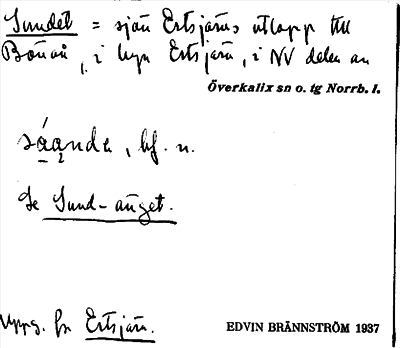 Sundet = sjön Ertsjärvs utlopp till
Bönån, i byn Ertsjärv, i NV delen av
Överkalix sn o. tg Norrb. l.
sáanda, bf. n.
Se Sund-änget.
Uppg. fr Ertsjärv.
EDVIN BRÄNNSTRÖM 1937